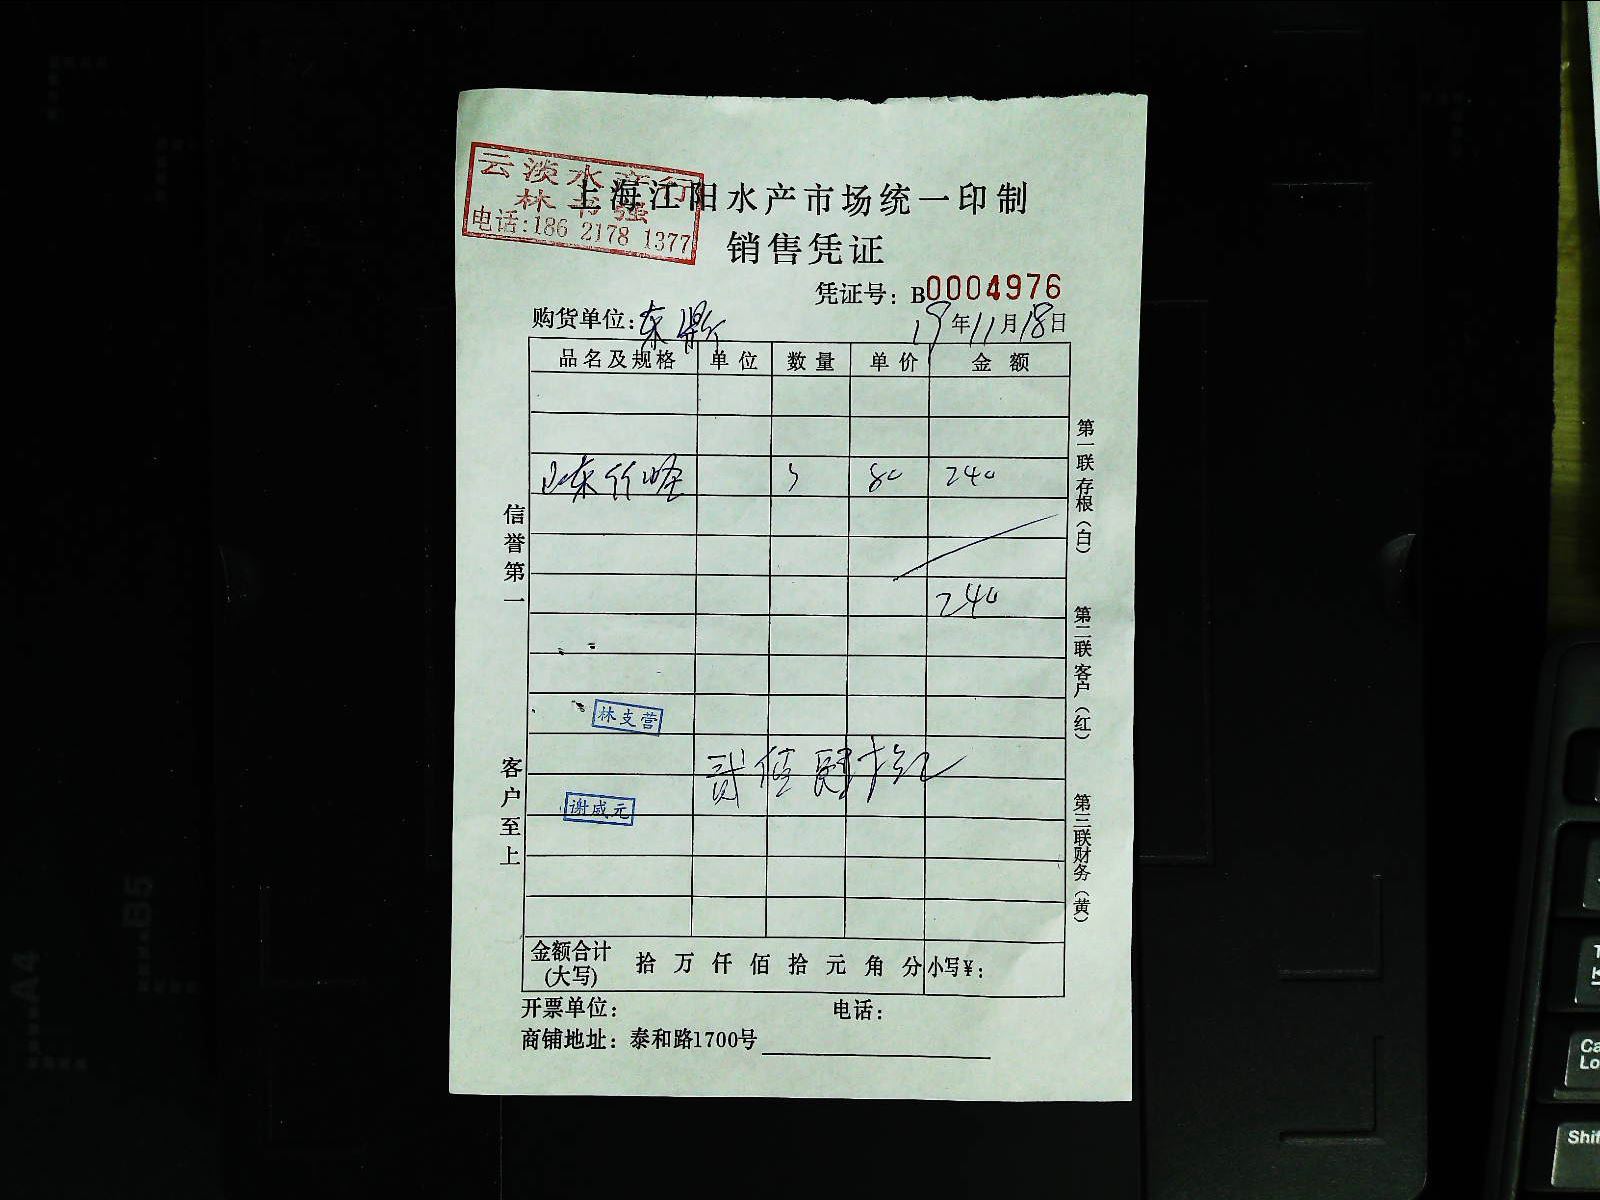 云淡水产行
林书强
电话:186 2178 1377
上海江阳水产市场统一印制
销售凭证
凭证号: B0004976
购货单位:东鼎 19年11月18日
品名及规格 单位 数量 单价 金额
山东竹蛏 3 80 240
240
林支营
贰佰肆拾元
谢咸元
信誉第一
客户至上
第一联存根(白)
第二联客户(红)
第三联财务(黄)
金额合计(大写) 拾万仟佰拾元角分 小写¥:
开票单位: 电话:
商铺地址: 泰和路1700号
A4
B5
Shif